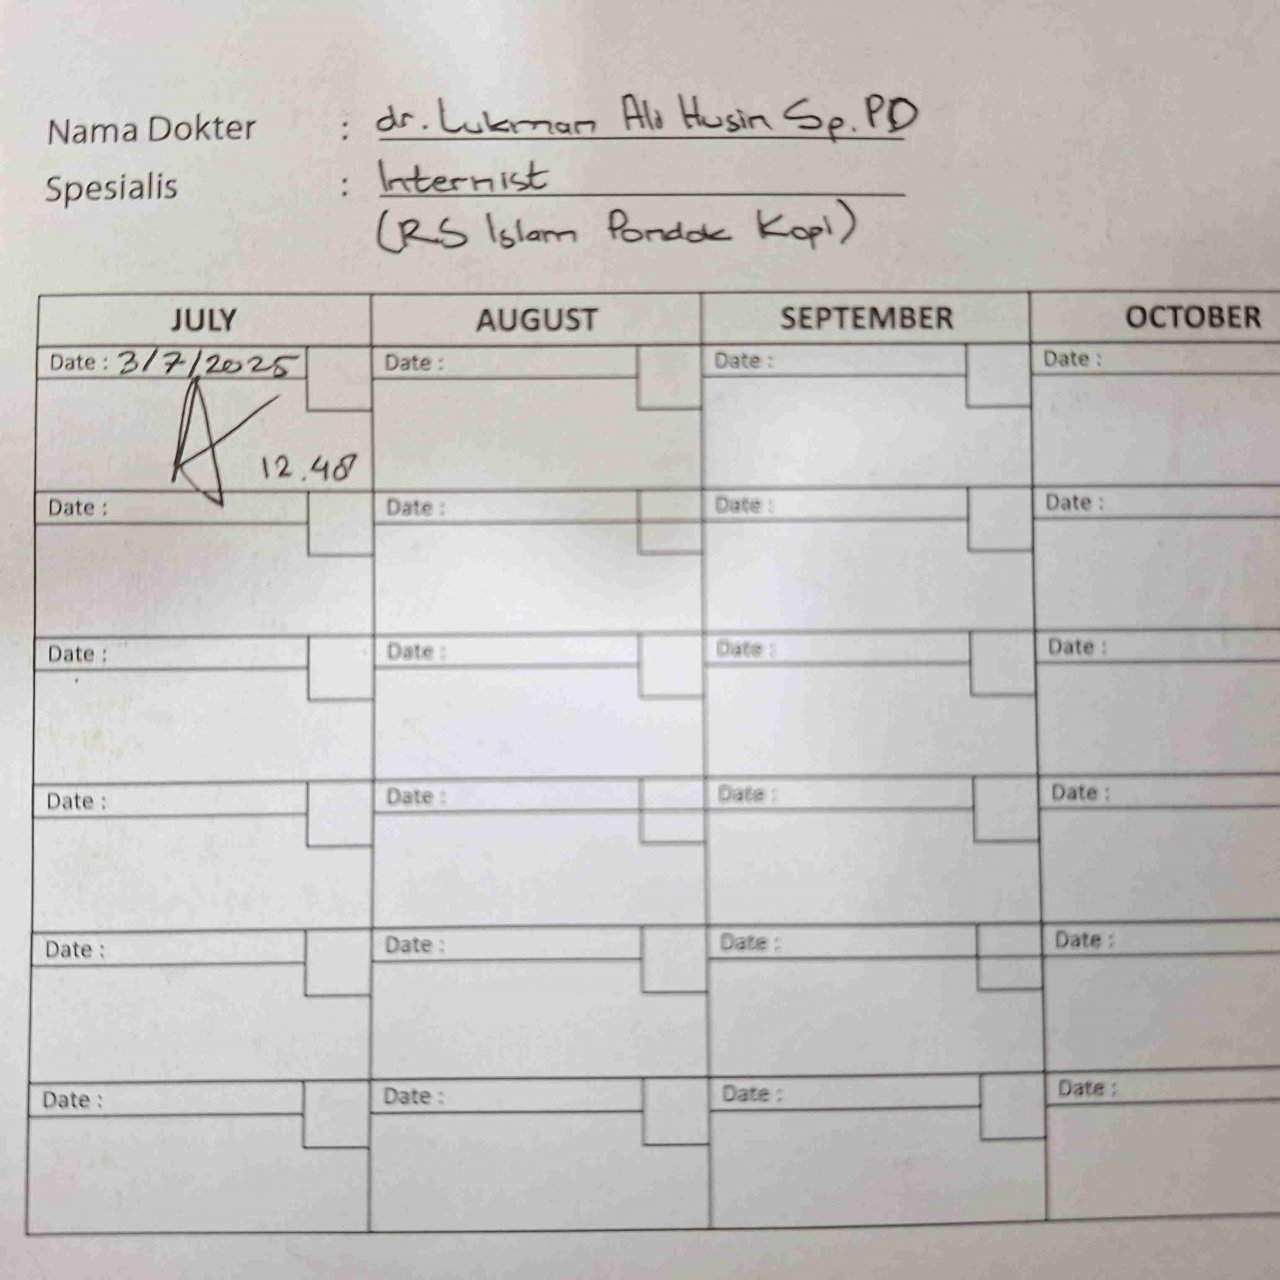 Nama Dokter : dr. Lukman Ali Husin Sp.PD
Spesialis : Internist
(RS Islam Pondok Kopi)
JULY AUGUST SEPTEMBER OCTOBER
Date : 3/7/2025 Date : Date : Date :
12.48
Date : Date : Date : Date :
Date : Date : Date : Date :
Date : Date : Date : Date :
Date : Date : Date : Date :
Date : Date : Date : Date :